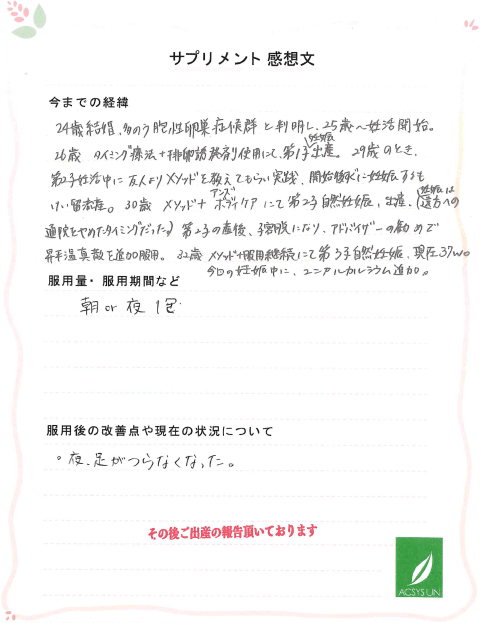 サプリメント 感想文
今までの経緯
24歳結婚、多のう胞性卵巣症候群 と判明し、25歳〜妊活開始。
妊娠
26歳 タイミング療法+排卵誘発剤使用にて、第1子出産。29歳のとき、
第2子妊活中に友人よりメソッドを教えてもらい実践、開始後すぐに妊娠するも
アンズ
けい留流産。30歳 メソッド+ボディケアにて第2子自然妊娠、出産。(妊娠は遠方への
通院をやめたタイミングだった。) 第2子の産後、子宮脱になり、アドバイザーの勧めで
昇平温真散を追加服用。32歳 メソッド+服用継続にて第3子自然妊娠、現在37w。
今回の妊娠中に、ユニアルカルシウム追加。
服用量・服用期間など
朝or夜 1包
服用後の改善点や現在の状況について
。夜、足がつらなくなった。
その後ご出産の報告頂いております
ACSYS UN